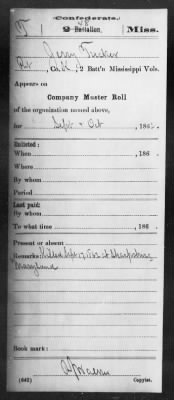 T Confederate.
48
2 Battalion, Miss.
Jerry Tucker
Pvt, Co. H, 2 Batt'n Mississippi Vols.
Appears on
Company Muster Roll
of the organization named above,
for Sept & Oct, 186
Enlisted:
When, 186 .
Where
By whom
Period
Last paid:
By whom
To what time, 186 .
Present or absent
Remarks: Killed Sept 17, 1862 at Sharpsburg
Maryland
Book mark:
(642) Copyist.